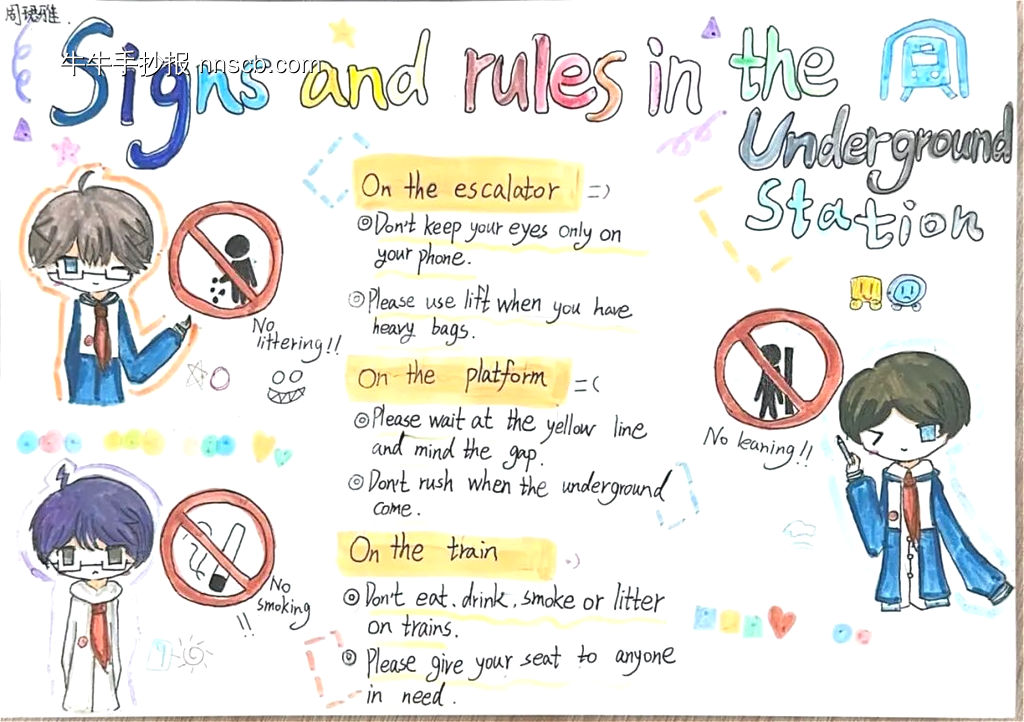 周珺雅.
牛牛手抄报 nnscb.com
Signs and rules in the
Underground
Station
On the escalator =)
◎Don't keep your eyes only on
your phone.
◎Please use lift when you have
heavy bags.
No
littering!!
On the platform =(
◎Please wait at the yellow line
and mind the gap.
◎Don't rush when the underground
come.
No leaning!!
On the train :)
◎Don't eat. drink. smoke or litter
on trains.
◎Please give your seat to anyone
in need.
No
smoking
!!